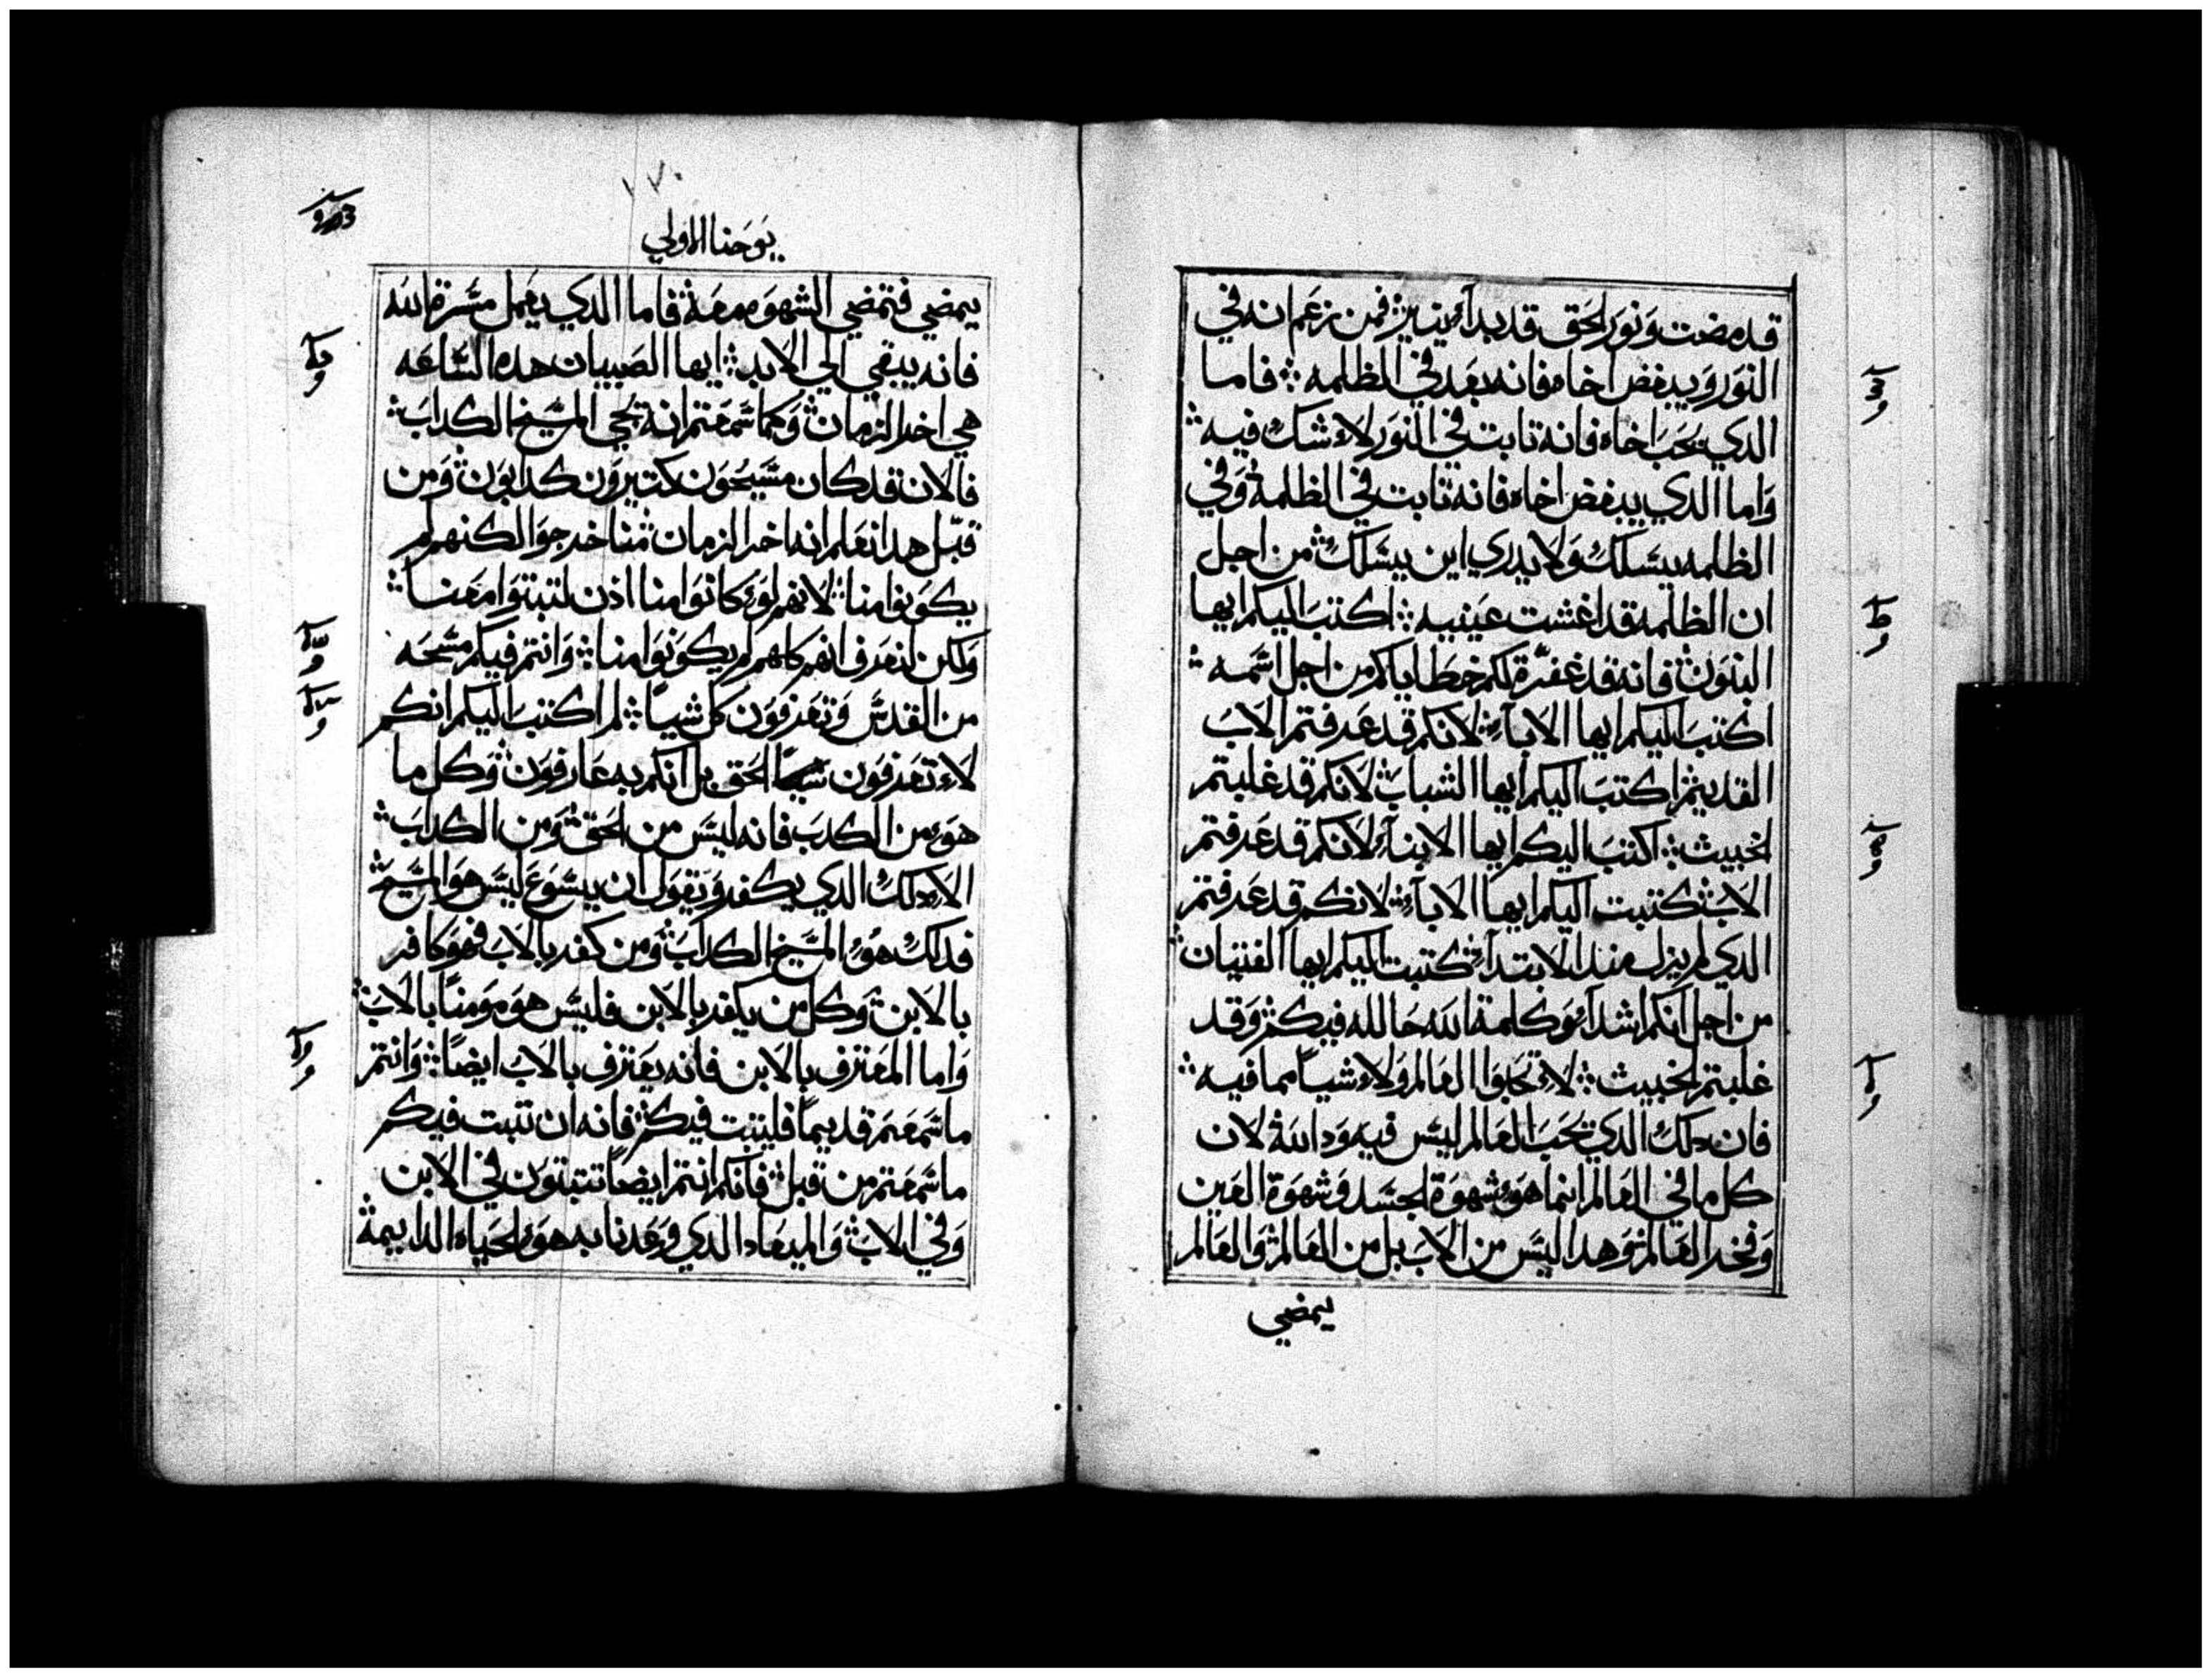 قد مضت ونور الحق قد بدا ينير فمن زعم انه في
النور ويبغض اخاه فانه بعد في الظلمه فاما
الدي يحب اخاه فانه تابت في النور لا شك فيه
واما الدي يبغض اخاه فانه تابت في الظلمة وفي
الظلمه يسلك ولا يدري اين يسلك من اجل
ان الظلمة قد اغشت عينيه اكتب اليكم ايها
البنون فانه قد غفرة لكم خطاياكم من اجل اسمه
اكتب اليكم ايها الاباء لانكم قد عرفتم الاب
القديم اكتب اليكم ايها الشباب لانكم قد غلبتم
الخبيث اكتب اليكم ايها الابناء لانكم قد عرفتم
الاب كتبت اليكم ايها الاباء لانكم قد عرفتم
الدي لم يزل مند الابتداء كتبت اليكم ايها الفتيان
من اجل انكم اشداء وكلمة الله حالله فيكم وقد
غلبتم الخبيث لا تحبوا العالم ولا شياً مما فيه
فان دلك الدي يحب العالم ليس فيه ود الله لان
كل ما في العالم انما هو شهوة الجسد وشهوة العين
وفخر العالم وهدا ليس من الاب بل من العالم والعالم
يمضي
١٧٠
يوحنا الاولي
يمضي فتمضي الشهوه معه فاما الدي يعمل مسرة الله
فانه يبقي الي الابد ايها الصبيان هده الساعه
هي اخر الزمان وكما سمعتم انه يجي المسيح الكداب
فالان قد كان مسيحون كتيرون كدابون ومن
قبل هدا نعلم انه اخر الزمان منا خرجوا لكنهم لم
يكونوا منا لانهم لو كانوا منا ادن لتبتوا معنا
ولكن لنعرف انهم كلهم لم يكونوا منا وانتم فيكم مسحه
من القدس وتعرفون كل شياً لم اكتب اليكم انكم
لا تعرفون الحق بل انكم به عارفون وكل ما
هو من الكدب فانه ليس من الحق ومن الكداب
الا دلك الدي يكفر ويقول ان يسوع ليس هو المسيح
فدلك هو المسيح الكداب ومن كفر بالاب فهو كافر
بالابن وكل من يكفر بالابن فليس هو مومناً بالاب
واما المعترف بالابن فانه يعترف بالاب ايضاً وانتم
ما سمعتم قديماً فليتبت فيكم فانه ان تبت فيكم
ما سمعتم من قبل فانكم انتم ايضاً تتبتون في الابن
وفي الاب والميعاد الدي وعدنا به هو الحياه الداييمة